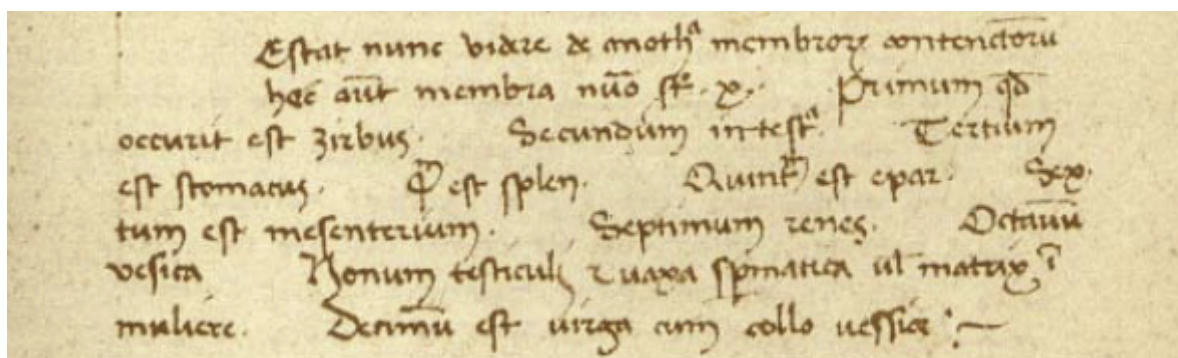 Estat nunc videre de anothᵃ membroꝝ contentoru̅
hec au̅t membra nu̅o st̅. x. Primum qd̅
occurit est zirbus. Secundum intestᵃ. Tertium
est stomacus. est splen. Quintu̅ est epar. Sex
tum est mesenterium. Septimum renes. Octauu̅
vesica Nonum testiculi ⁊ uaxa spmatica ul̅ matrix i̅
muliere. Decimu̅ est uirga cum collo uessice